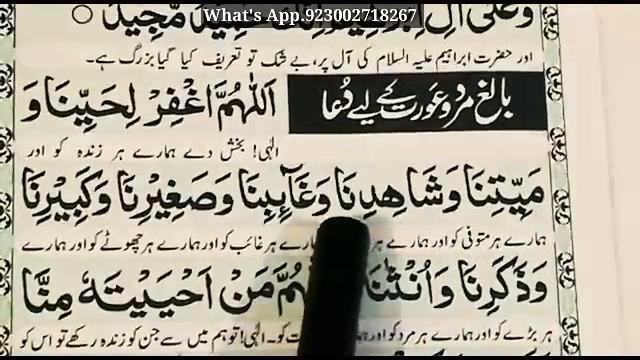 What's App.923002718267
وَعَلٰى اٰلِ اِبْرَاهِيْمَ اِنَّكَ حَمِيْدٌ مَّجِيْدٌ ○
اور حضرت ابراہیم علیہ السلام کی آل پر، بے شک تو تعریف کیا گیا بزرگ ہے۔
بالغ مرد و عورت کے لیے دُعا
اَللّٰهُمَّ اغْفِرْ لِحَيِّنَا وَ
الٰہی! بخش دے ہمارے ہر زندہ کو اور
مَيِّتِنَا وَشَاهِدِنَا وَغَآئِبِنَا وَصَغِيْرِنَا وَكَبِيْرِنَا
ہمارے ہر متوفی کو اور ہمارے ہر ہمارے ہر غائب کو اور ہمارے ہر چھوٹے کو اور ہمارے
وَذَكَرِنَا وَاُنْثٰنَا هُمَّ مَنْ اَحْيَيْتَهٗ مِنَّا
ہر بڑے کو اور ہمارے ہر مرد کو اور ہمارے ت کو۔ الٰہی! تو ہم میں سے جس کو زندہ رکھے تو اس کو